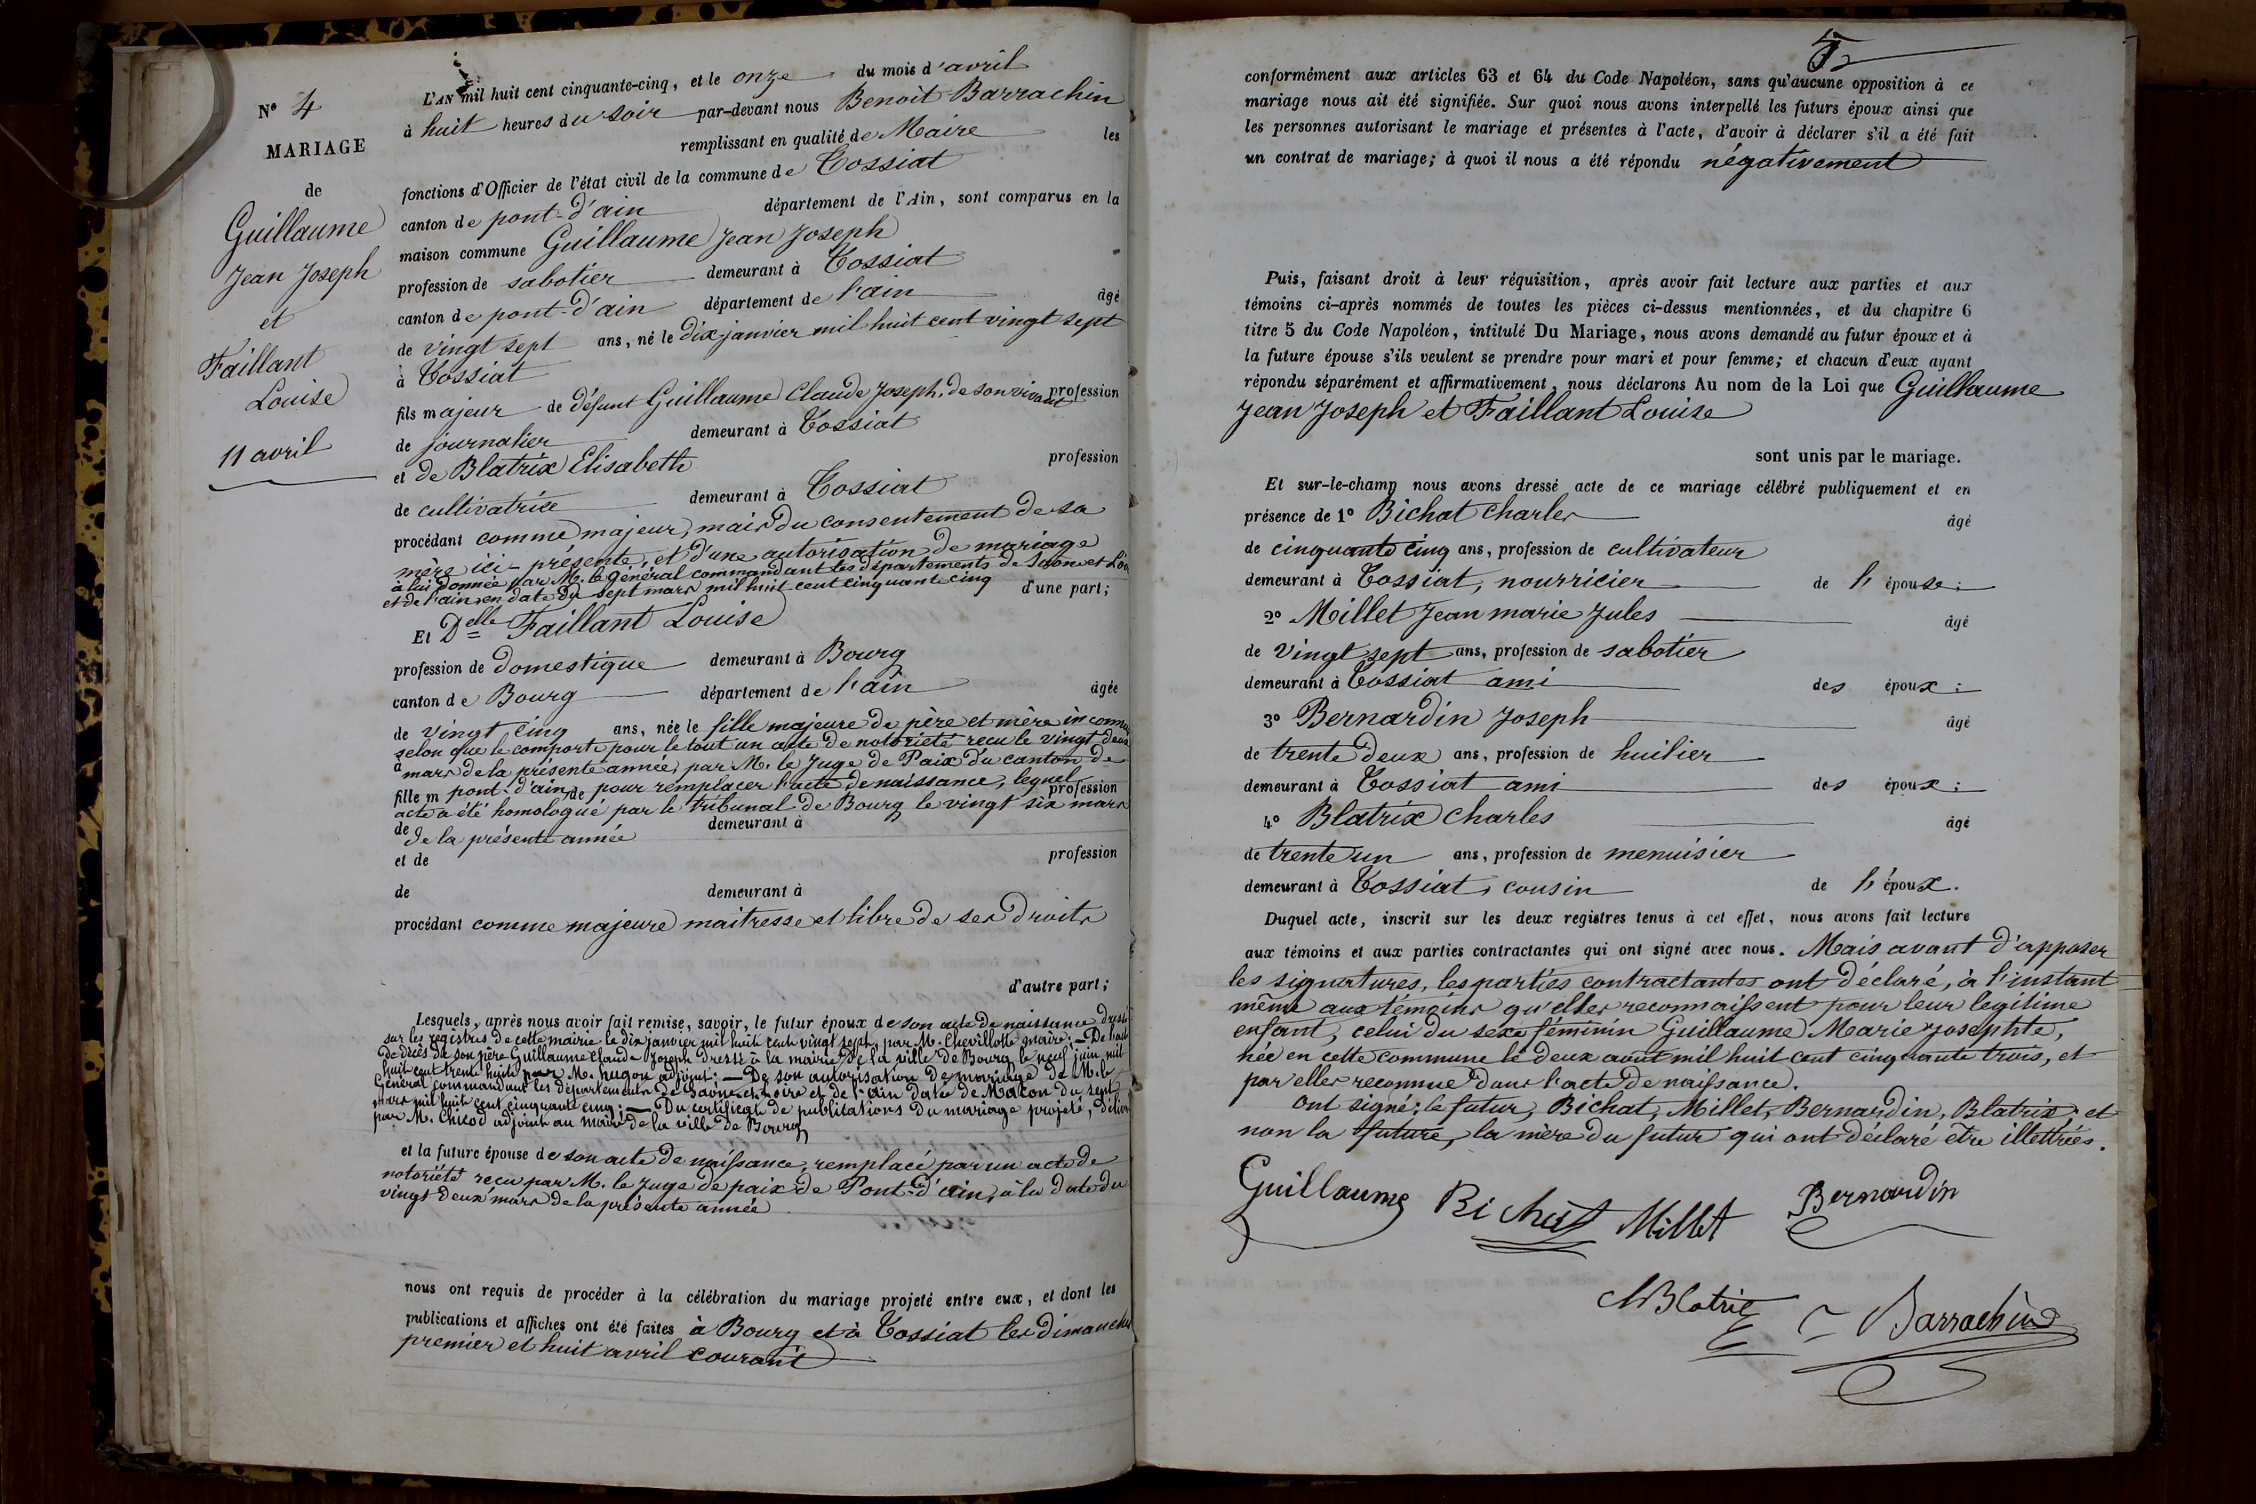 N° 4
MARIAGE
de
Guillaume
Jean Joseph
et
Faillant
Louise
11 avril
L'AN mil huit cent cinquante-cinq, et le onze du mois d'avril
à huit heures du soir par-devant nous Benoit Barrachin
remplissant en qualité de Maire les
fonctions d'Officier de l'état civil de la commune de Tossiat
canton de pont-d'ain département de l'Ain, sont comparus en la
maison commune Guillaume Jean Joseph
profession de sabotier demeurant à Tossiat
canton de pont-d'ain département de l'ain âgé
de vingt sept ans, né le dix janvier mil huit cent vingt sept
à Tossiat
fils majeur de défunt Guillaume Claude Joseph, de son vivant profession
de journalier demeurant à Tossiat
et de Blatrix Elisabeth profession
de cultivatrice demeurant à Tossiat
procédant comme majeur, mais du consentement de sa
mère ici-présente, et d'une autorisation de mariage
à lui donnée par M. le général commandant les départements de Saône et Loire
et de l'ain en date du sept mars mil huit cent cinquante cinq d'une part;
Et Delle Faillant Louise
profession de domestique demeurant à Bourg
canton de Bourg département de l'ain âgée
de vingt cinq ans, née le fille majeure de père et mère inconnus
selon que le comporte pour le tout un acte de notorieté recu le vingt deux
à mars de la présente année, par M. le Juge de Paix du canton de
fille m pont-d'ain, de pour remplacer l'acte de naissance, lequel profession
acte a été homologué par le tribunal de Bourg le vingt six mars
de de la présente année demeurant à
et de profession
de demeurant à
procédant comme majeure maitresse et libre de ses droits
d'autre part;
Lesquels, après nous avoir fait remise, savoir, le futur époux de son acte de naissance dressé
sur les registres de cette mairie le dix janvier mil huit cent vingt sept, par M. Chevillotte maire; — De l'acte
de décès de son père Guillaume Claude Joseph dressé à la mairie de la ville de Bourg le neuf juin mil
huit cent trente huit par M. hugon adjoint; — De son autorisation de mariage de M. le
Général commandant les départements de Saône et Loire et de l'ain datée de Macon du sept
mars mil huit cent cinquante cinq; — Du certificat de publications du mariage projeté, délivré
par M. Chicod adjoint au maire de la ville de Bourg
et la future épouse de son acte de naissance, remplacé par un acte de
notoriété reçu par M. le Juge de paix de Pont-d'ain, à la date du
vingt deux mars de la présente année
nous ont requis de procéder à la célébration du mariage projeté entre eux, et dont les
publications et affiches ont été faites à Bourg et à Tossiat les dimanches
premier et huit avril courant
5
conformément aux articles 63 et 64 du Code Napoléon, sans qu'aucune opposition à ce
mariage nous ait été signifiée. Sur quoi nous avons interpellé les futurs époux ainsi que
les personnes autorisant le mariage et présentes à l'acte, d'avoir à déclarer s'il a été fait
un contrat de mariage; à quoi il nous a été répondu négativement
Puis, faisant droit à leur réquisition, après avoir fait lecture aux parties et aux
témoins ci-après nommés de toutes les pièces ci-dessus mentionnées, et du chapitre 6
titre 5 du Code Napoléon, intitulé Du Mariage, nous avons demandé au futur époux et à
la future épouse s'ils veulent se prendre pour mari et pour femme; et chacun d'eux ayant
répondu séparément et affirmativement, nous déclarons Au nom de la Loi que Guillaume
Jean Joseph et Faillant Louise
sont unis par le mariage.
Et sur-le-champ nous avons dressé acte de ce mariage célébré publiquement et en
présence de 1° Bichat Charles âgé
de cinquante cinq ans, profession de cultivateur
demeurant à Tossiat, nourricier de l'épouse;
2° Millet Jean marie Jules âgé
de vingt sept ans, profession de sabotier
demeurant à Tossiat ami des époux;
3° Bernardin Joseph âgé
de trente deux ans, profession de huilier
demeurant à Tossiat ami des époux;
4° Blatrix Charles âgé
de trente un ans, profession de menuisier
demeurant à Tossiat, cousin de l'époux.
Duquel acte, inscrit sur les deux registres tenus à cet effet, nous avons fait lecture
aux témoins et aux parties contractantes qui ont signé avec nous. Mais avant d'apposer
les signatures, les parties contractantes ont déclaré, à l'instant
même aux témoins qu'elles reconnaissent pour leur legitime
enfant, celui du sexe féminin Guillaume Marie Josephte,
née en cette commune le deux aout mil huit cent cinquante trois, et
par elles reconnue dans l'acte de naissance.
Ont signé: le futur, Bichat, Millet, Bernardin, Blatrix; et
non la future, la mère du futur qui ont déclaré être illettrées.
Guillaume Bichat Millet Bernardin
Ch Blatrix Barrachin